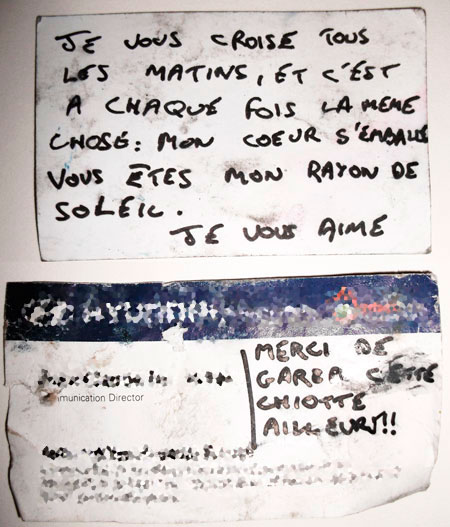 JE VOUS CROISE TOUS
LES MATINS, ET C'EST
A CHAQUE FOIS LA MEME
CHOSE: MON COEUR S'EMBALLE
VOUS ÊTES MON RAYON DE
SOLEIL.
JE VOUS AIME
MERCI DE
GARER CETTE
CHIOTTE
AILLEURS!!
mmunication Director